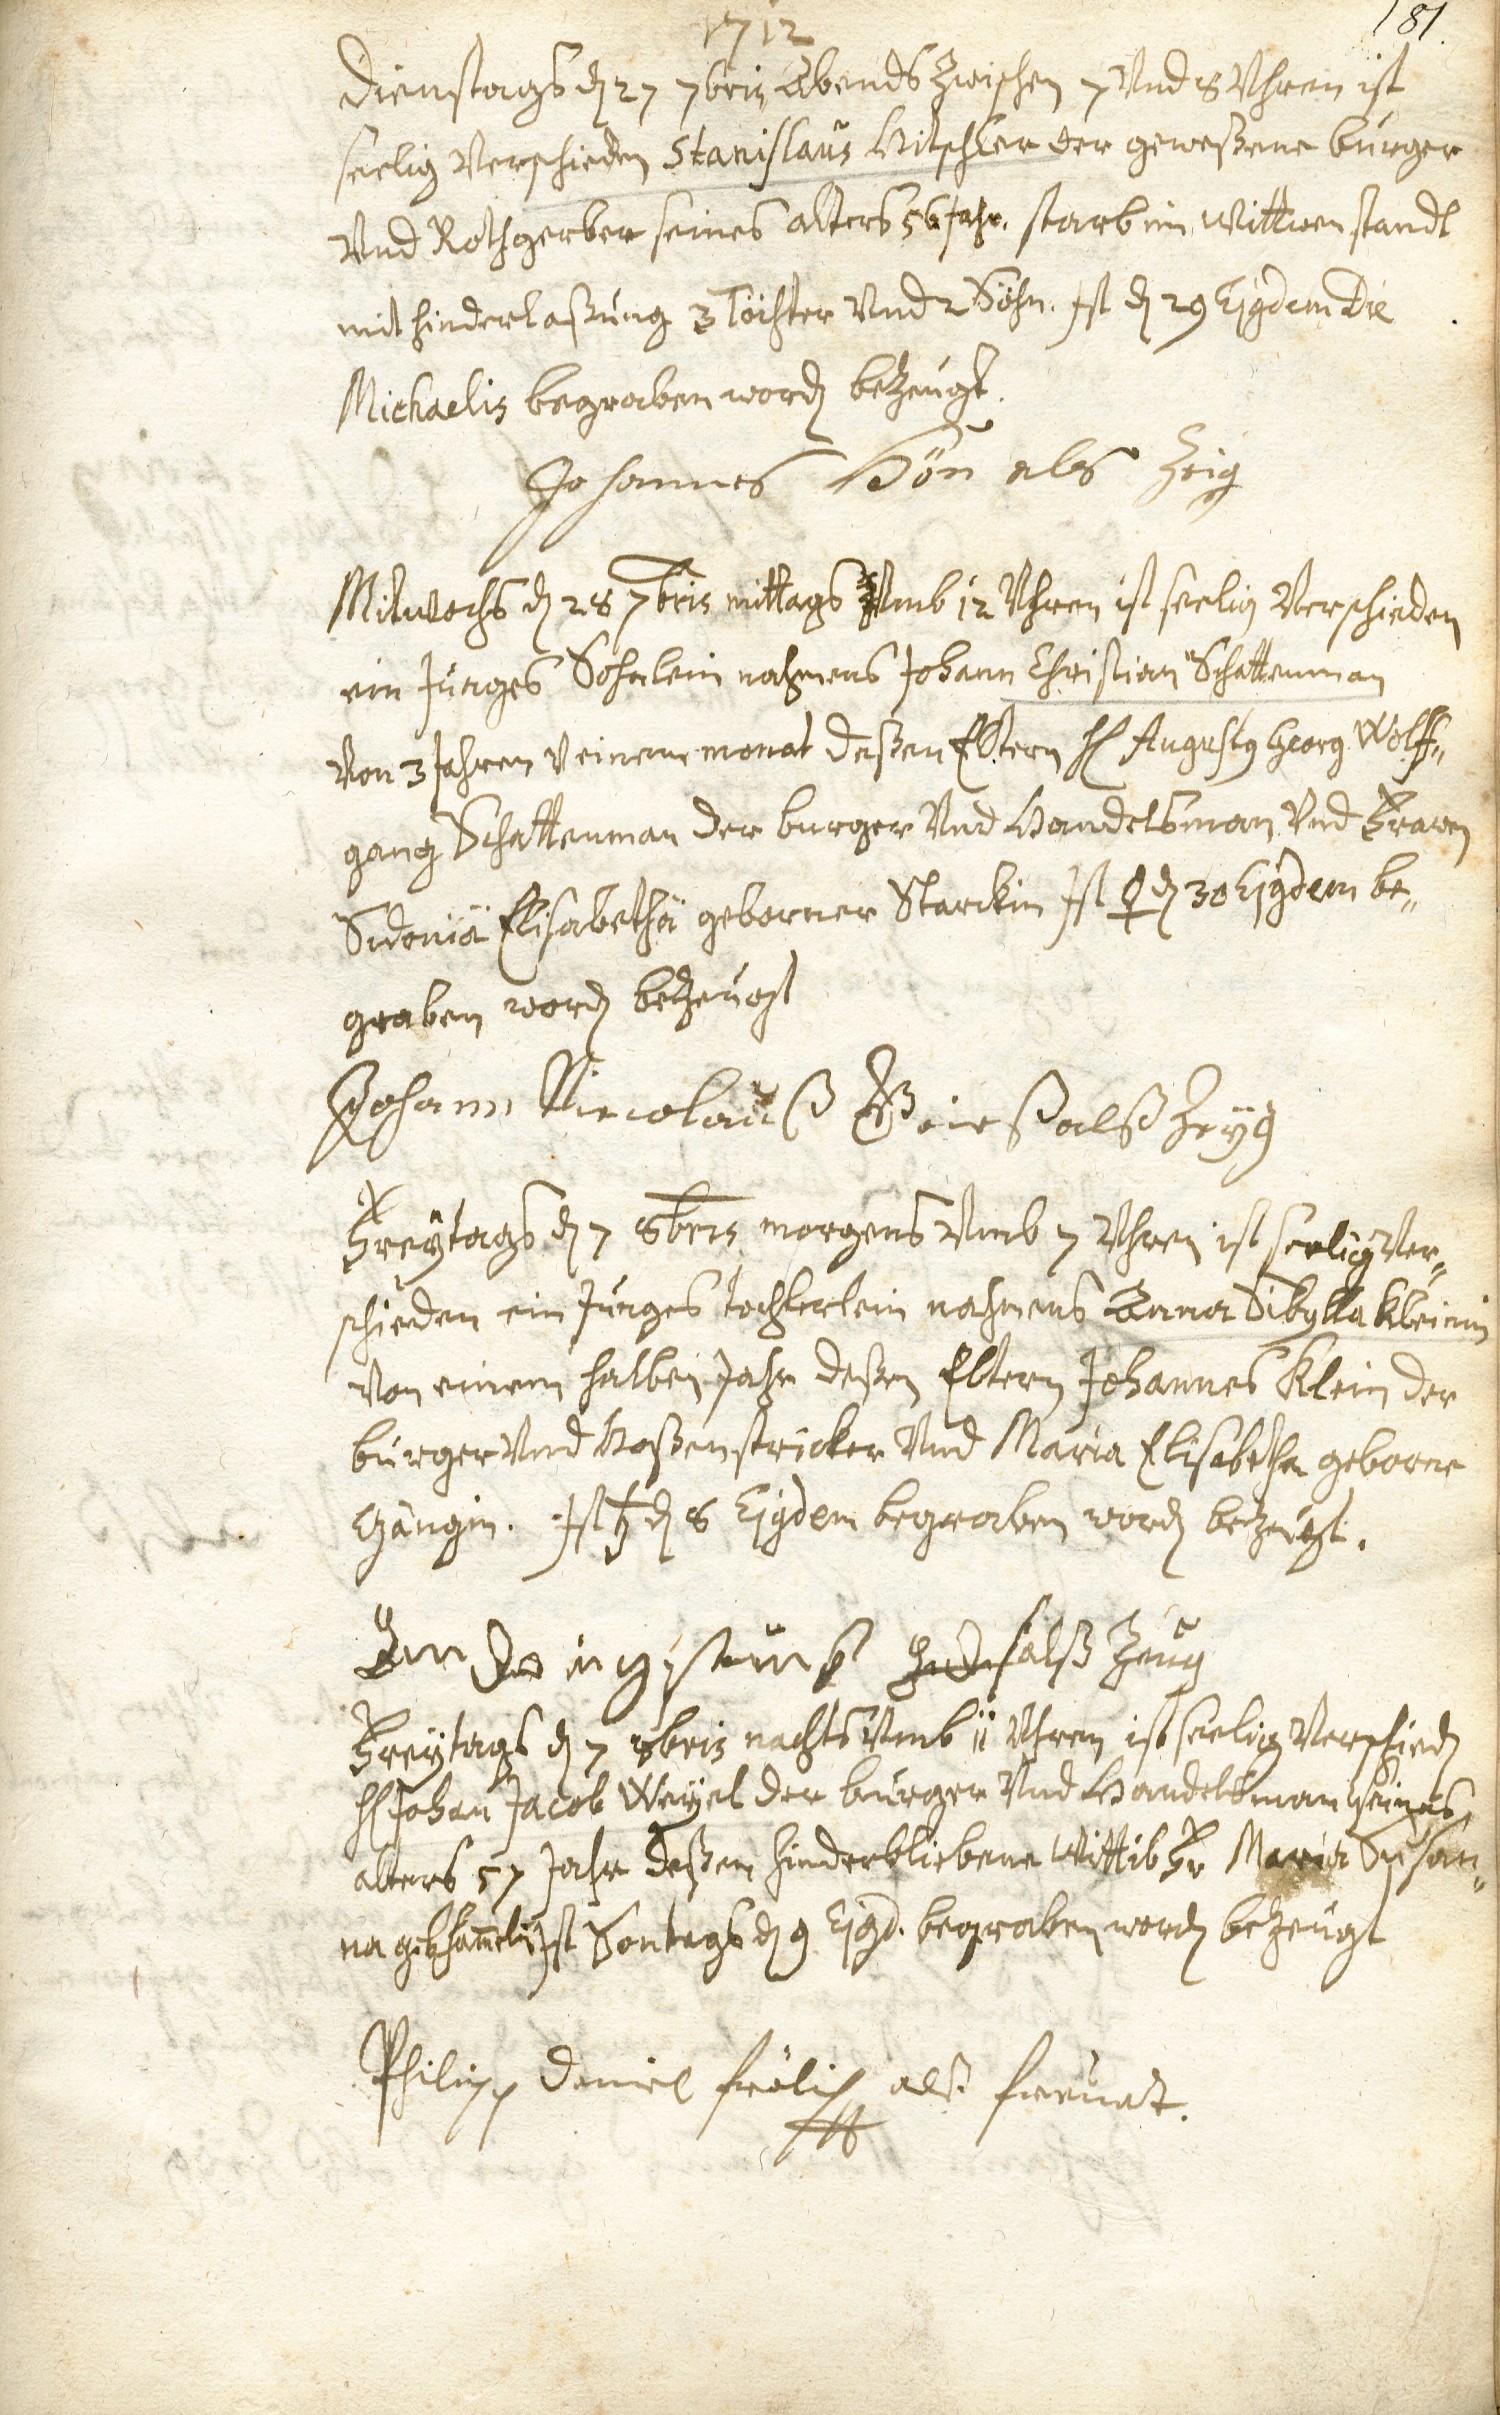 1712
181.
Dienstags d 27 7bris Abends zwischen 7 Vnd 8 Vhren ist
seelig Verschieden Stanislaus Hitschler der geweßene burger
Vnd Rothgerber seines alters 56 Jahr. starb im Wittwen standt
mit hinderlaßung 3 Töchter Vnd 2 Söhn. Ist d 29 Ejgdem Die
Michaelis begraben word bezeugt.
Johannes Hön als Zeig
Mitwochs d 28 7bris mittags Vmb 12 Vhren ist seelig Verschieden
ein Junges Söhnlein nahmens Johann Christian Schattenman
Von 3 Jahren V einem monat deßen Eltern H Augusty Georg Wolff„
gang Schattenman der burger Vnd Handelsman Vnd Frawen
Sidoniä Elisabethä geborner Starckin Ist ♀ d 30 Ejgdem be„
graben word bezeugt
Johann Nicolauß als Zeyg
Freytags d 7 8bris morgens Vmb 7 Vhren ist seelig Ver„
schieden ein Junges Töchterlein nahmens Anna Sibylla Kleinin
Von einem halben Jahr deßen Eltern Johannes Klein der
burger Vnd Hoßenstricker Vnd Maria Elisabetha geborne
Gängin. Ist ♄ d 8 Ejgdem begraben word bezeugt.
alß Zeug
Freytags d 7 8bris nachts Vmb 11 Vhren ist seelig Verschied
H Johan Jacob Weyel der burger Vnd Handelsman seines
alters 57 Jahr deßen hinderbliebene Wittib Fr Maria Susan„
na geb Ist Sontags d 9 Ejgd. begraben word bezeugt
Philipp Daniel frölich alß freundt.